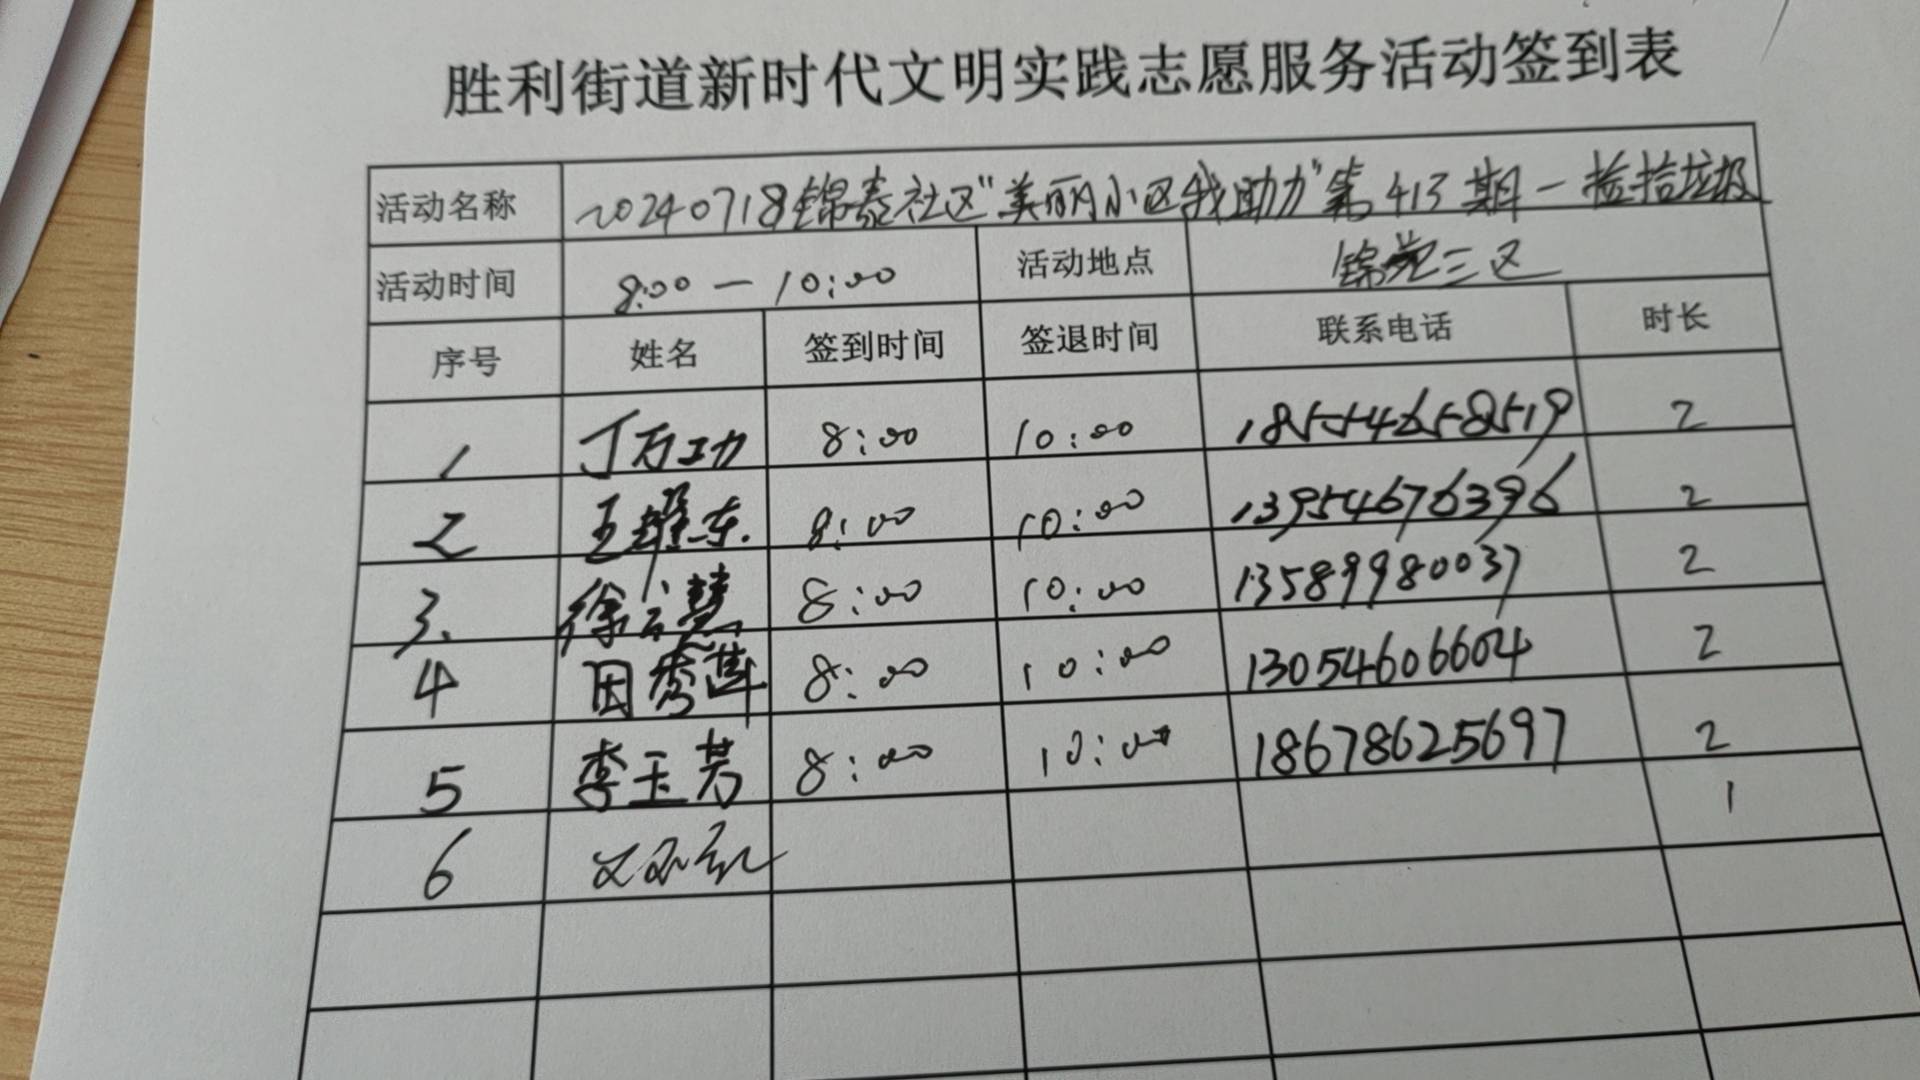 胜利街道新时代文明实践志愿服务活动签到表
活动名称 20240718锦泰社区"美丽小区我助力"第413期一捡拾垃圾
活动时间 8:00一10:00 活动地点 锦苑三区
序号 姓名 签到时间 签退时间 联系电话 时长
1 丁万功 8:00 10:00 18554658519 2
2 王维东. 8:00 10:00 13954676396 2
3. 徐云慧 8:00 10:00 13589980037 2
4 田秀莲 8:00 10:00 13054606604 2
5 李玉芳 8:00 10:00 18678625697 2
6 1